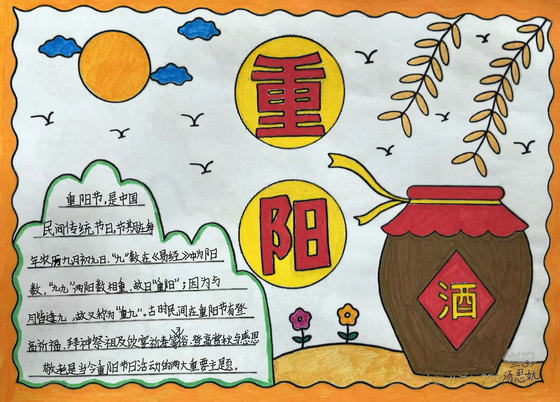 重
阳
重阳节,是中国
民间传统节日,节期在每
年农历九月初九日。“九”数在《易经》中为阳
数,“九九”两阳数相重,故曰“重阳”;因为与
月皆逢九,故又称为“重九”。古时民间在重阳节有登
高祈福、拜神祭祖及饮宴祈寿等习俗。登高赏秋与感恩
敬老是当今重阳节日活动的两大重要主题。
酒
汤思妧